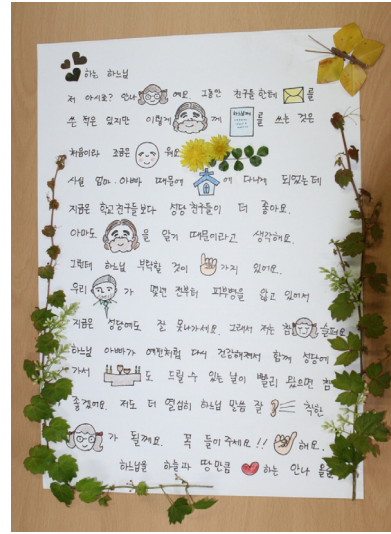 하는 하느님
저 아시죠? 안나 예요 그동안 친구들한테 를
쓴 적은 있지만 이렇게 께 하느님께 를 쓰는 것은
처음이라 조금은 워요
사실 엄마·아빠 때문에 에 다니게 되었는데
지금은 학교친구들보다 성당 친구들이 더 좋아요.
아마도 을 알기 때문이라고 생각해요.
그런데 하느님 부탁할 것이 가지 있어요.
우리 가 몇년 전부터 피부병을 앓고 있어서
지금은 성당에도 잘 못나가세요. 그래서 저는 참 슬퍼요
하느님 아빠가 예전처럼 다시 건강해져서 함께 성당에
가서 도 드릴 수 있는 날이 빨리 왔으면 참
좋겠어요. 저도 더 열심히 하느님 말씀 잘 착한
가 될께요. 꼭 들어주세요!! 해요.
하느님을 하늘과 땅만큼 하는 안나 올림